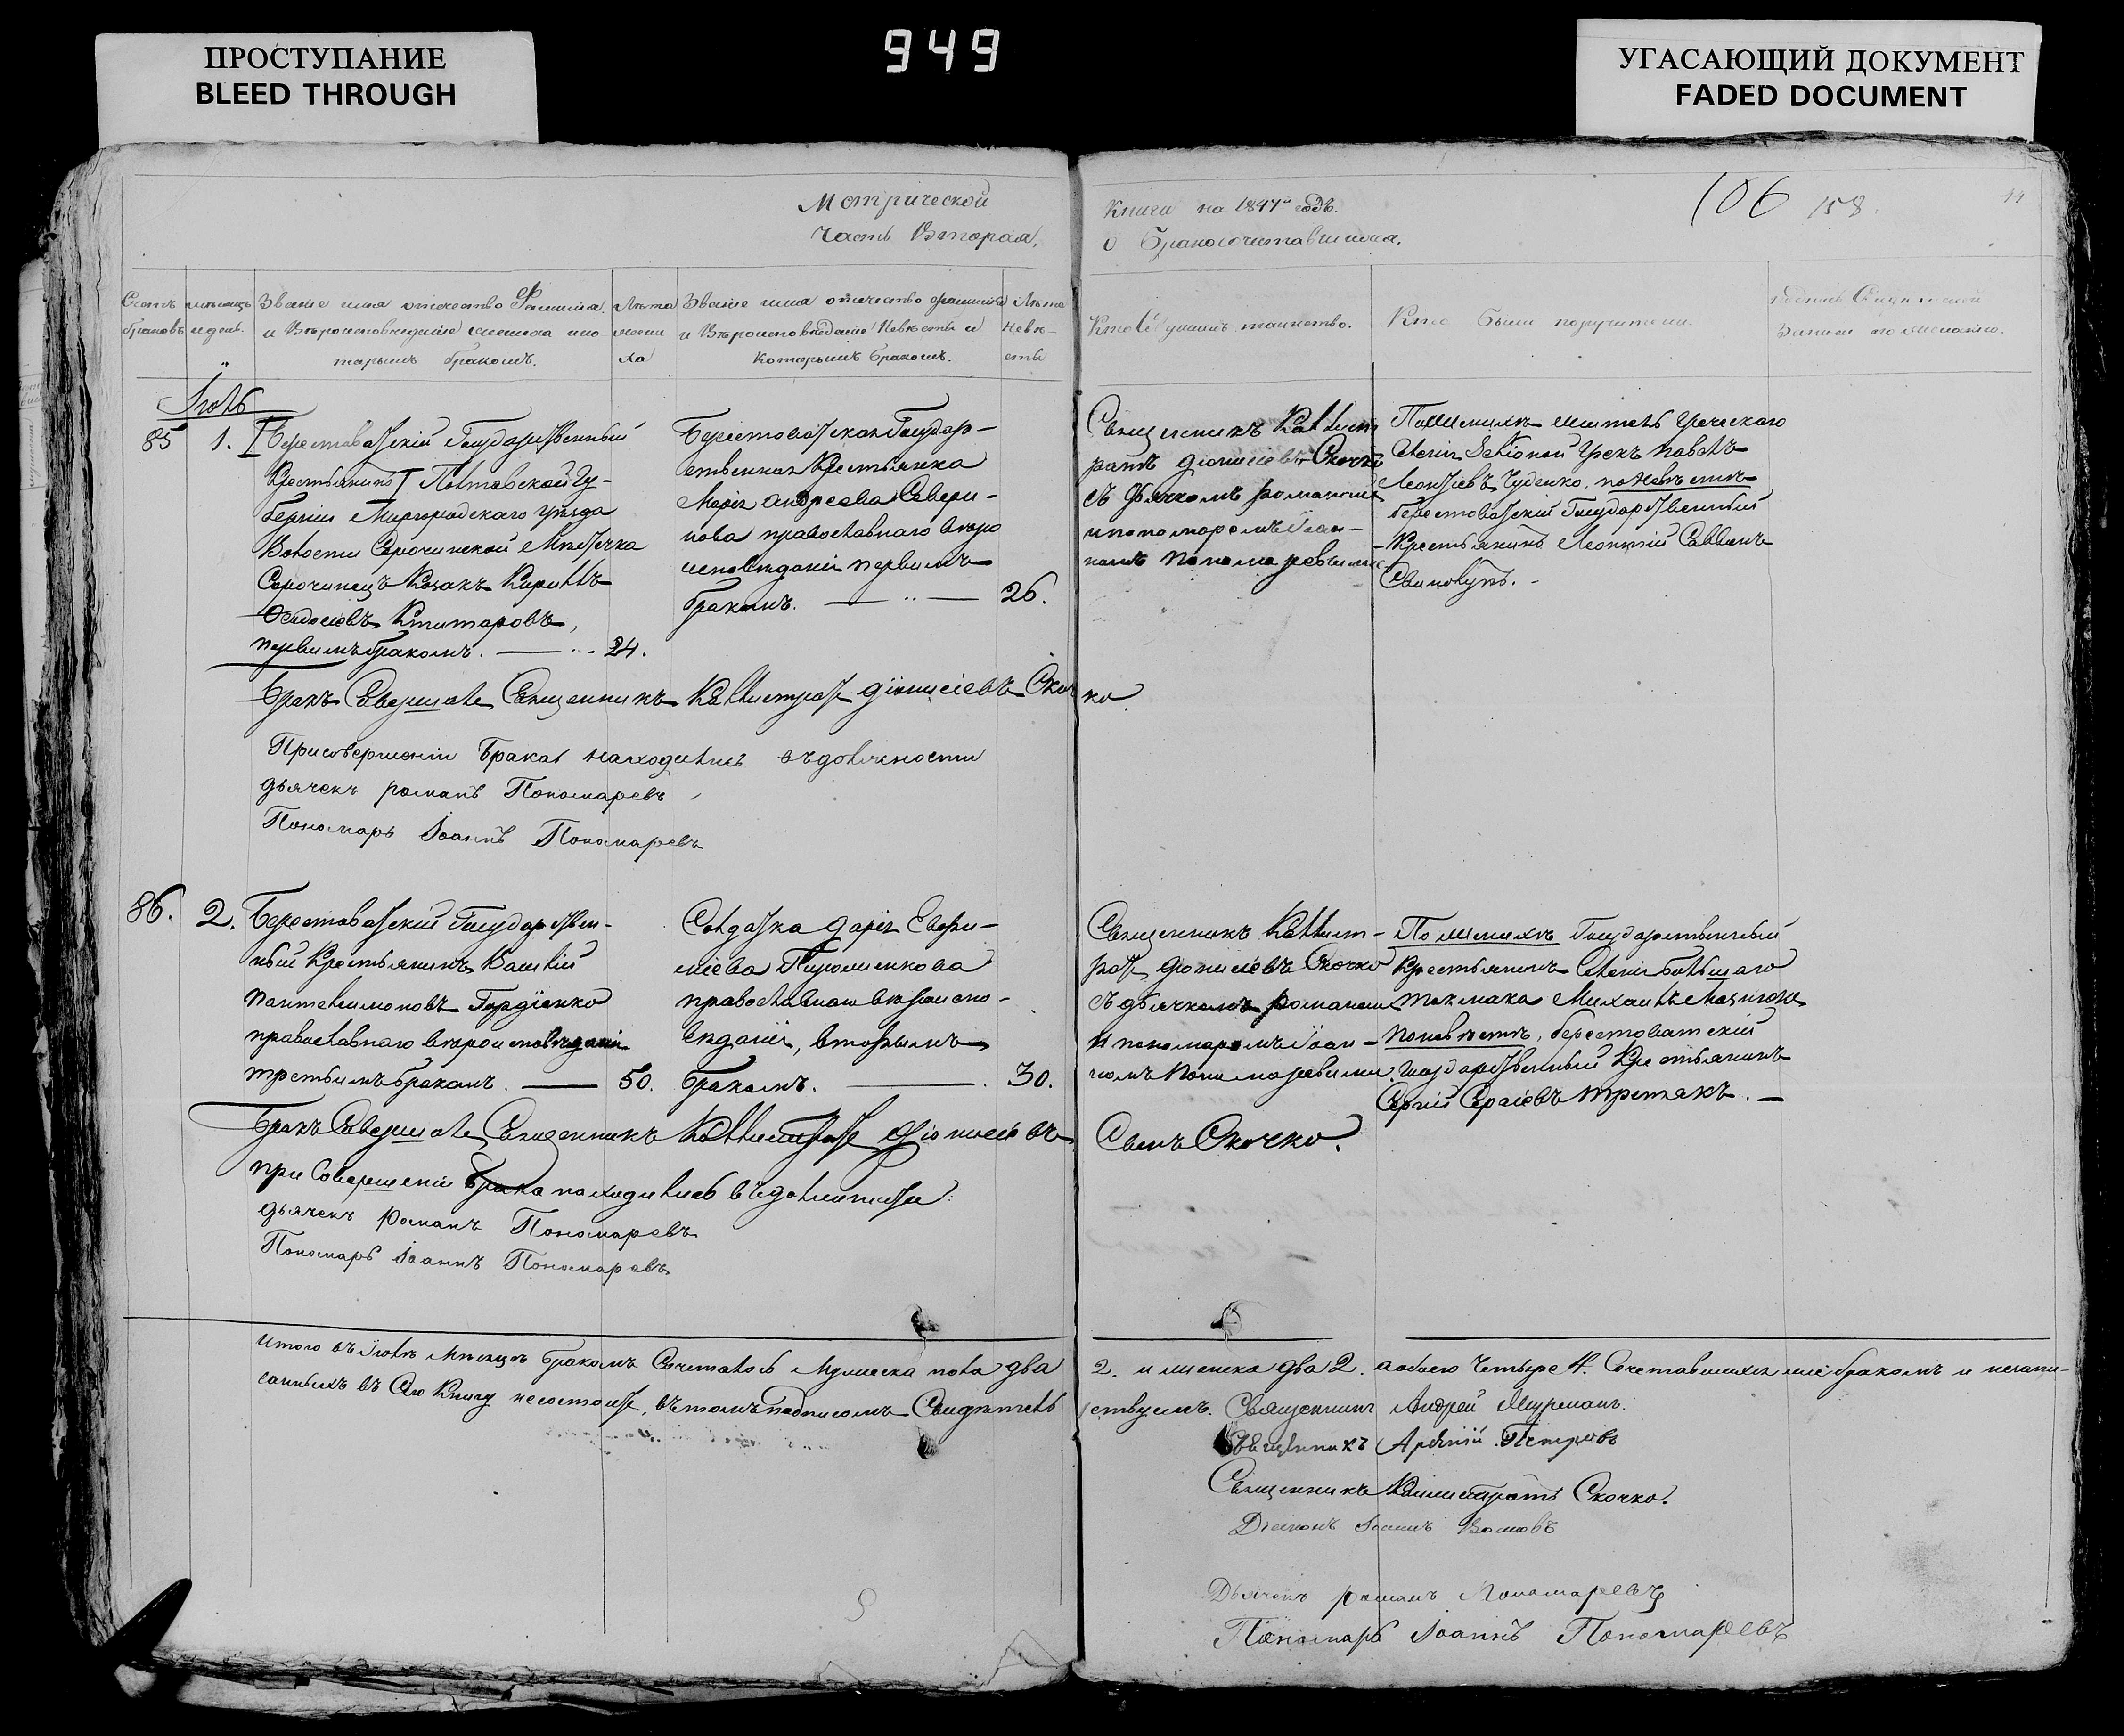 ПРОСТУПАНИЕ
BLEED THROUGH
949
УГАСАЮЩИЙ ДОКУМЕНТ
FADED DOCUMENT
Метрической
Часть Вторая,
Книги на 1847й годъ.
о бракосочетавшихся.
106 158.
Счетъ браковъ
мѣсяцъ и день.
Званіе имя отчество Фамилія
и Вѣроисповѣданіе жениха и ко
торымъ бракомъ.
Лѣта жени ха
Званіе имя отчество фамилія
и Вѣроисповѣданіе Невѣсты и
которымъ бракомъ.
Лѣта Невѣ- сты
Кто Совершилъ таинство.
Кто были поручители.
Іюль
85 1. Берестоватскій Государственный
Крестьянинъ Полтавской Гу-
берніи Миргородскаго уѣзда
Волости Сорочинской Мѣстечка
Сорочинецъ Козакъ Кириллъ
Феодосіевъ Ктитаровъ,
первымъ бракомъ. 24.
Берестоватская Государ-
ственная Крестьянка
Марія Андреева Севери-
нова православнаго вѣро
исповѣданія первымъ
бракомъ. 26.
Священникъ Каллист
ратъ Діонисіевъ Скочко
съ дьячкомъ Романомъ
и пономаремъ Іоан-
номъ Пономаревыми
По женихѣ житель Греческаго
Грекъ Павелъ
Леонтіевъ Чуденко. по невѣстѣ
берестоватскій Государственный
Крестьянинъ Леонтій Саввинъ
Свинобузъ.
Бракъ Совершалъ Священникъ Каллистратъ Діонисіевъ Скочко
При совершеніи брака находились въ должности
дьячекъ Романъ Пономаревъ
Пономарь Іоаннъ Пономаревъ
86. 2. Берестоватскій Государствен-
ный Крестьянинъ Василій
Пантелимоновъ Гордіенко
православнаго вѣроисповѣданія
третьимъ бракомъ. 50.
Солдатка Дарія Евфи-
міева
православнаго вѣроиспо-
вѣданія, вторымъ
бракомъ. 30.
Священникъ Каллист-
ратъ Діонисіевъ Скочко
съ дьячкомъ Романомъ
и пономаремъ Іоан-
номъ Пономаревыми
По женихѣ Государственный
Крестьянинъ Села Большаго
Токмака Михаилъ
по невѣстѣ, берестоватскій
государственный Крестьянинъ
Сергій Сергіевъ Третякъ.
Бракъ Совершалъ Священникъ Каллистратъ Діонисіевъ Сынъ Скочко.
при Совершеніи брака находились въ должности
дьячекъ Романъ Пономаревъ
Пономарь Іоаннъ Пономаревъ
Итого въ Іюлѣ Мѣсяцѣ бракомъ Сочеталось Мужеска пола два 2. и женска два 2. а обоего четыре 4. Сочетавшихся же бракомъ и незапи-
санныхъ въ Сію Книгу несостоитъ, въ томъ подписомъ Свидѣтельствуемъ. Священникъ Андрей Мурманъ.
Священникъ Арсеній Петровъ
Священникъ Каллистратъ Скочко.
Діаконъ Іоаннъ
Дьячекъ Романъ Пономаревъ
Пономарь Іоаннъ Пономаревъ